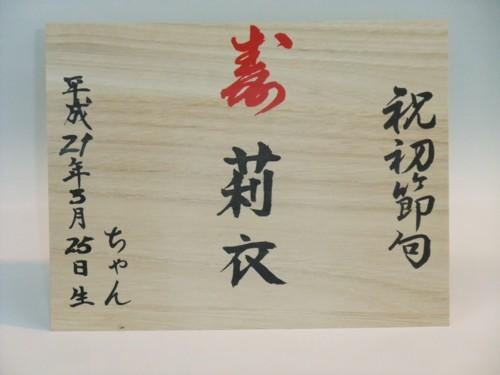 祝初節句
寿
莉衣
ちゃん
平成21年5月25日生